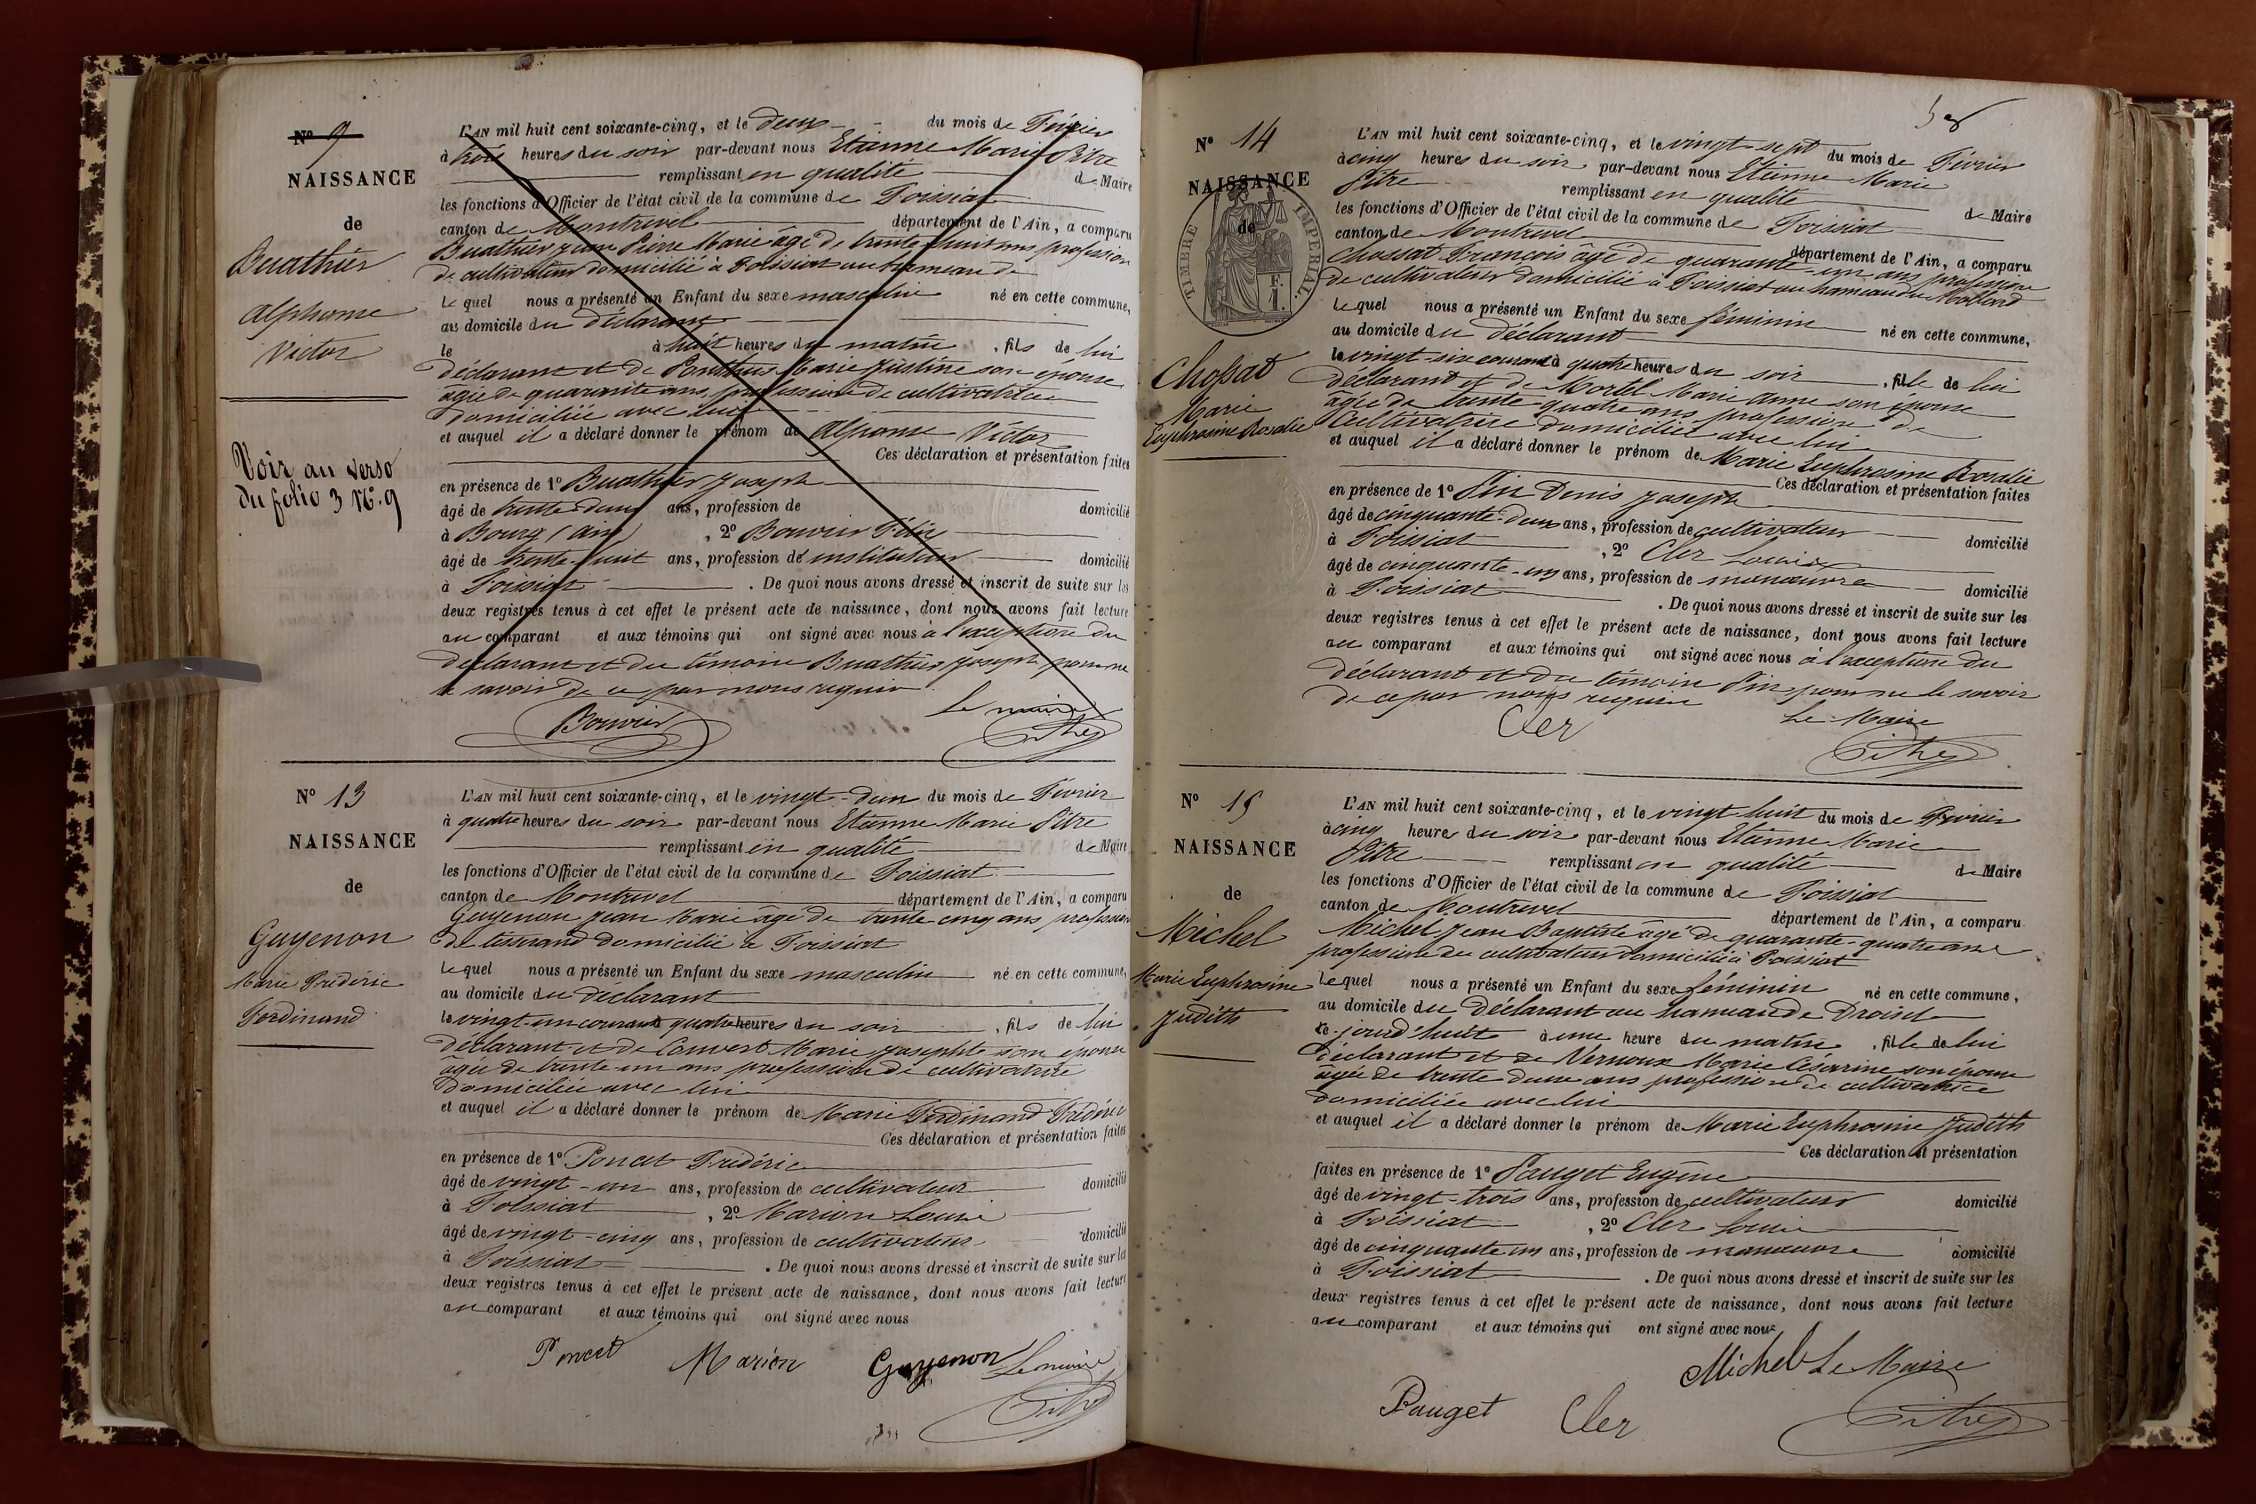 N° 9
NAISSANCE
de
Buathier
Alphonse
Victor
Voir au verso
du folio 3 N°. 9
L'AN mil huit cent soixante-cinq, et le deux du mois de Février
à trois heures du soir par-devant nous Etienne Marie Pitre
remplissant en qualité de Maire
les fonctions d'Officier de l'état civil de la commune de Foissiat
canton de Montrevel département de l'Ain, a comparu
Buathier Jean Pierre Marie âgé de trente huit ans profession
de cultivateur domicilié à Foissiat au hameau de
Lequel nous a présenté un Enfant du sexe masculin né en cette commune,
au domicile du déclarant
le à huit heures du matin, fils de lui
déclarant et de Ponthus Marie Justine son épouse
âgée de quarante ans, profession de cultivatrice
domiciliée avec lui
et auquel il a déclaré donner le prénom de Alphonse Victor
Ces déclaration et présentation faites
en présence de 1° Buathier Joseph
âgé de trente deux ans, profession de domicilié
à Bourg (Ain), 2° Bouvier Félix
âgé de trente-huit ans, profession de instituteur domicilié
à Foissiat. De quoi nous avons dressé et inscrit de suite sur les
deux registres tenus à cet effet le présent acte de naissance, dont nous avons fait lecture
au comparant et aux témoins qui ont signé avec nous à l'exception du
déclarant et du témoin Buathier Joseph pour ne
le savoir de ce par nous requis
Bouvier
Le maire
Pitre
N° 13
NAISSANCE
de
Guyenon
Marie Frédéric
Ferdinand
L'AN mil huit cent soixante-cinq, et le vingt-deux du mois de Février
à quatre heures du soir par-devant nous Etienne Marie Pitre
remplissant en qualité de Maire
les fonctions d'Officier de l'état civil de la commune de Foissiat
canton de Montrevel département de l'Ain, a comparu
Guyenon Jean Marie âgé de trente cinq ans profession
de tisserand domicilié à Foissiat
Lequel nous a présenté un Enfant du sexe masculin né en cette commune,
au domicile du déclarant
le vingt-un courant à quatre heures du soir, fils de lui
déclarant et de Convert Marie Josephte son épouse
âgée de trente un ans profession de cultivatrice
domiciliée avec lui
et auquel il a déclaré donner le prénom de Marie Ferdinand Frédéric
Ces déclaration et présentation faites
en présence de 1° Poncet Frédéric
âgé de vingt-un ans, profession de cultivateur domicilié
à Foissiat, 2° Marion Louis
âgé de vingt-cinq ans, profession de cultivateur domicilié
à Foissiat. De quoi nous avons dressé et inscrit de suite sur les
deux registres tenus à cet effet le présent acte de naissance, dont nous avons fait lecture
au comparant et aux témoins qui ont signé avec nous
Poncet Marion Guyenon Le maire
Pitre
N° 14
NAISSANCE
de
TIMBRE IMPERIAL
1 F.
Chossat
Marie
Euphrosine Rosalie
L'AN mil huit cent soixante-cinq, et le vingt-sept du mois de Février
à cinq heures du soir par-devant nous Etienne Marie
Pitre remplissant en qualité de Maire
les fonctions d'Officier de l'état civil de la commune de Foissiat
canton de Montrevel département de l'Ain, a comparu
Chossat François âgé de quarante-un ans profession
de cultivateur domicilié à Foissiat au hameau du Mollard
Lequel nous a présenté un Enfant du sexe féminin né en cette commune,
au domicile du déclarant
le vingt-six courant à quatre heures du soir, fille de lui
déclarant et de Mortel Marie Anne son épouse
âgée de trente-quatre ans profession de
Cultivatrice domiciliée avec lui
et auquel il a déclaré donner le prénom de Marie Euphrosine Rosalie
Ces déclaration et présentation faites
en présence de 1° Pin Denis Joseph
âgé de cinquante-deux ans, profession de cultivateur domicilié
à Foissiat, 2° Cler Louis
âgé de cinquante-un ans, profession de manœuvre domicilié
à Foissiat. De quoi nous avons dressé et inscrit de suite sur les
deux registres tenus à cet effet le présent acte de naissance, dont nous avons fait lecture
au comparant et aux témoins qui ont signé avec nous à l'exception du
déclarant et du témoin Pin pour ne le savoir
de ce par nous requis
Cler
Le Maire
Pitre
N° 15
NAISSANCE
de
Michel
Marie Euphrosine
Judith
L'AN mil huit cent soixante-cinq, et le vingt huit du mois de Février
à cinq heures du soir par-devant nous Etienne Marie
Pitre remplissant en qualité de Maire
les fonctions d'Officier de l'état civil de la commune de Foissiat
canton de Montrevel département de l'Ain, a comparu
Michel Jean Baptiste âgé de quarante-quatre ans
profession de cultivateur domicilié à Foissiat
Lequel nous a présenté un Enfant du sexe féminin né en cette commune,
au domicile du déclarant au hameau de
ce jourd'huit à une heure du matin, fille de lui
déclarant et de Vernoux Marie Césarine son épouse
âgée de trente deux ans profession de cultivatrice
domiciliée avec lui
et auquel il a déclaré donner le prénom de Marie Euphrosine Judith
Ces déclaration et présentation
faites en présence de 1° Pauget Eugène
âgé de vingt-trois ans, profession de cultivateur domicilié
à Foissiat, 2° Cler Louis
âgé de cinquante un ans, profession de manœuvre domicilié
à Foissiat. De quoi nous avons dressé et inscrit de suite sur les
deux registres tenus à cet effet le présent acte de naissance, dont nous avons fait lecture
au comparant et aux témoins qui ont signé avec nous
Michel Le Maire
Pauget Cler Pitre